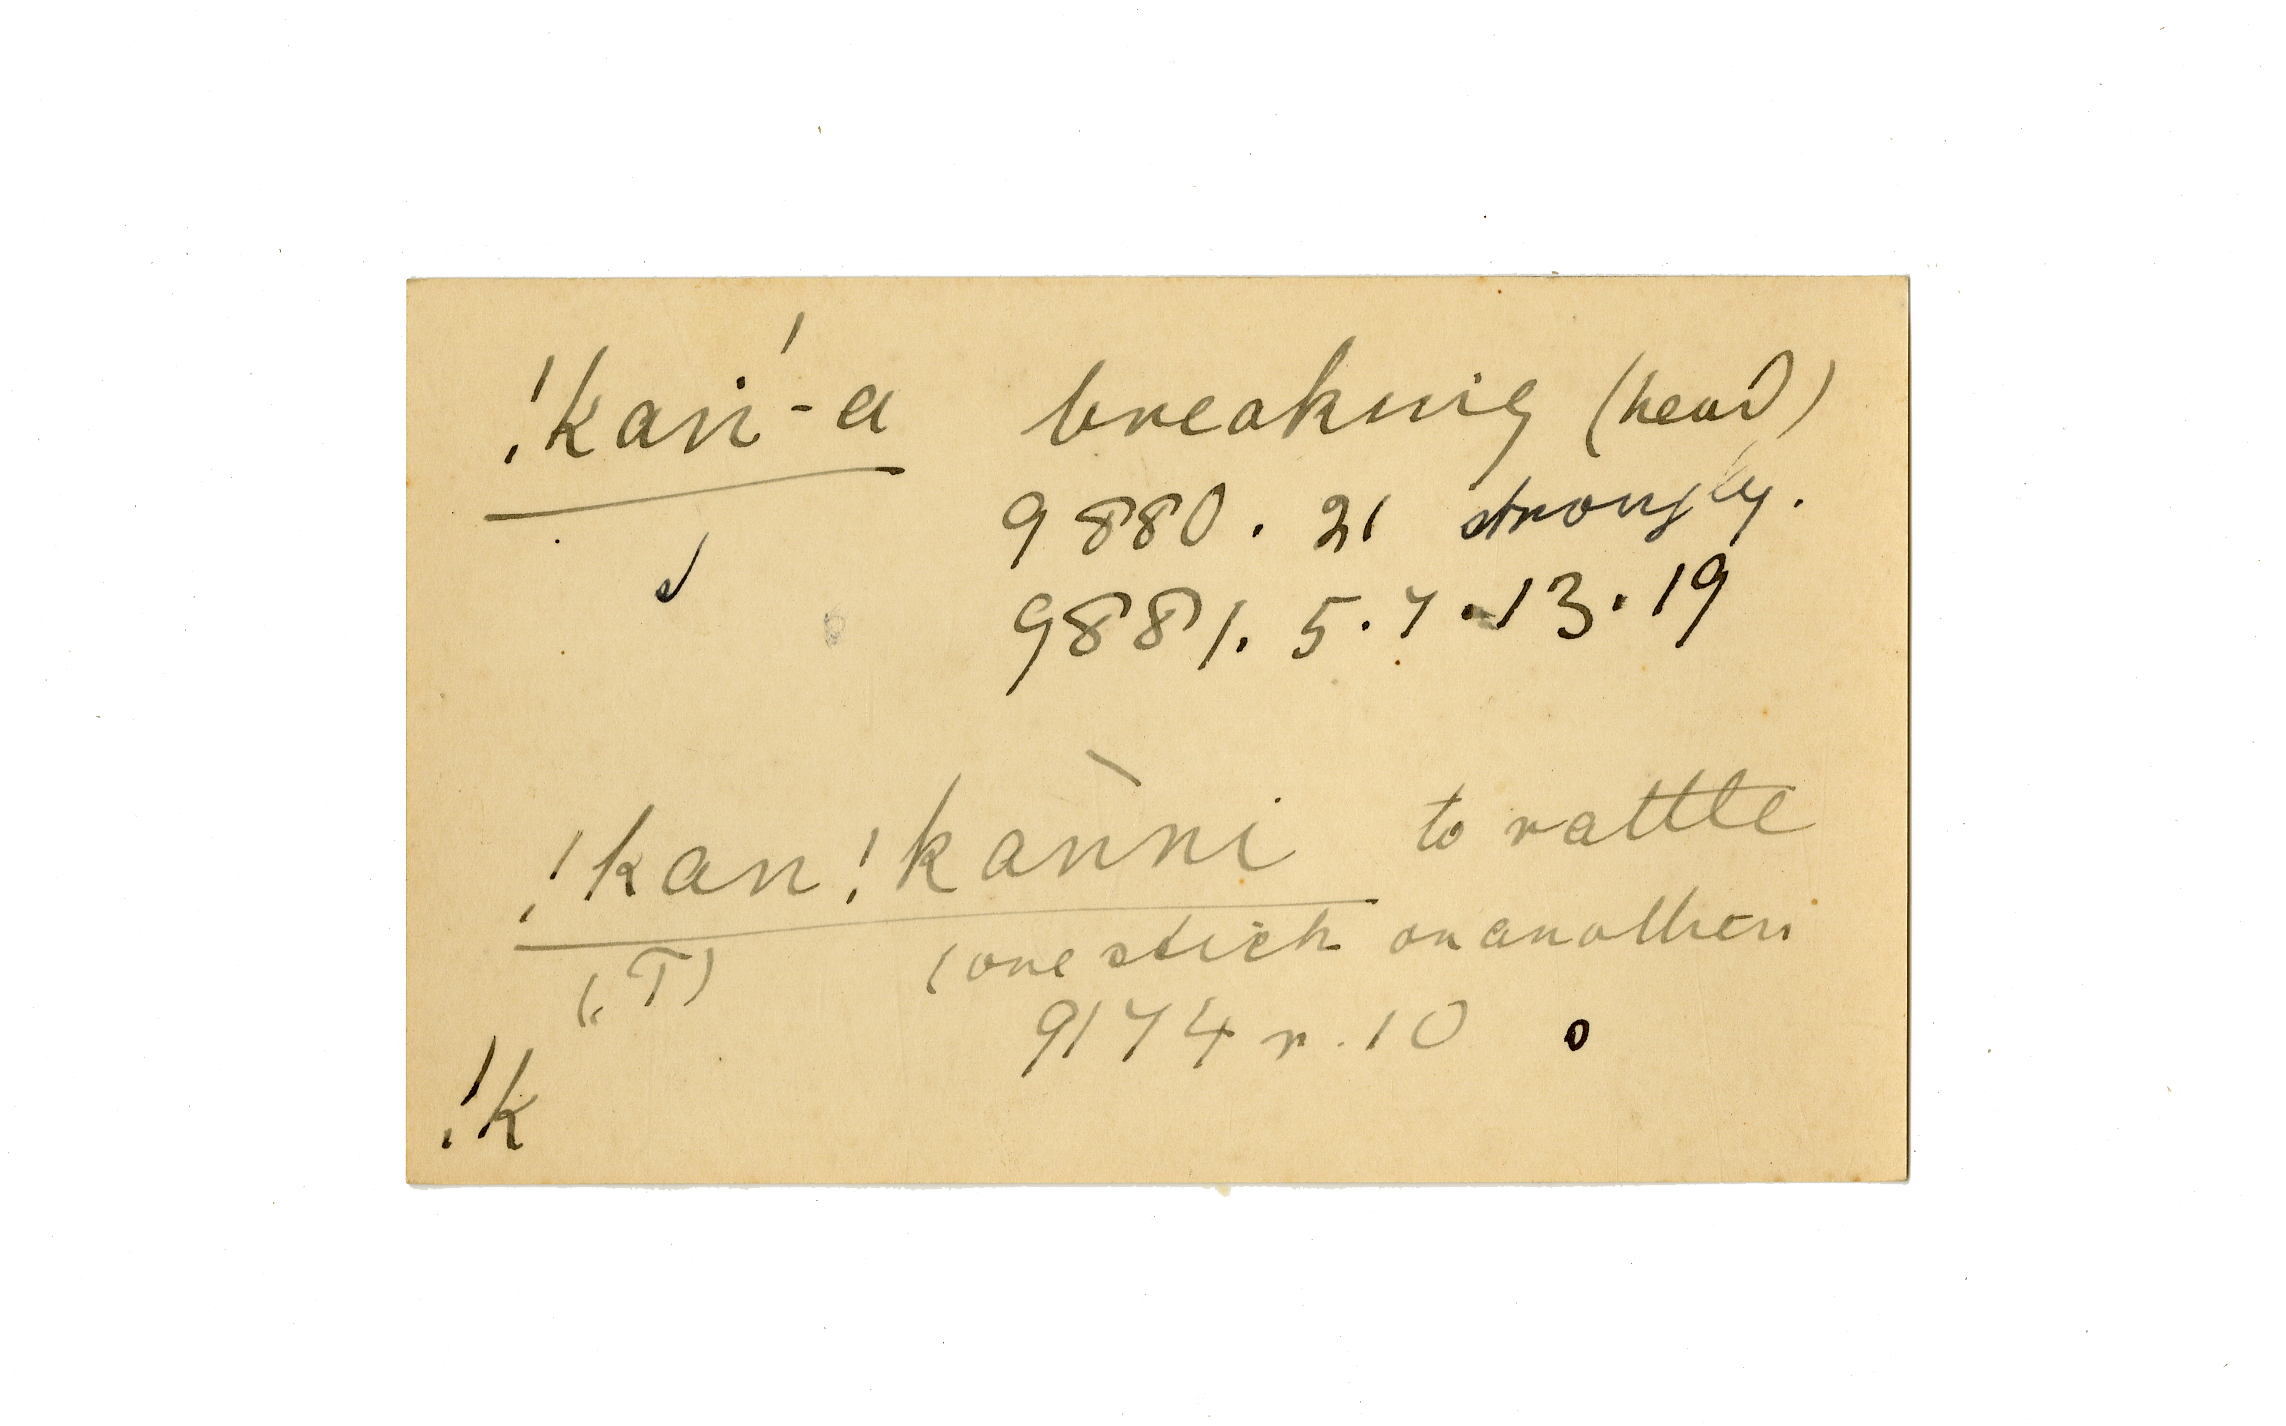 !kaṅ́-a breaking (head)
9880. 21 strongly.
9881. 5. 7. 13. 19
!kan!kànni to rattle
(T) (one stick on another)
9174 r. 10
!k